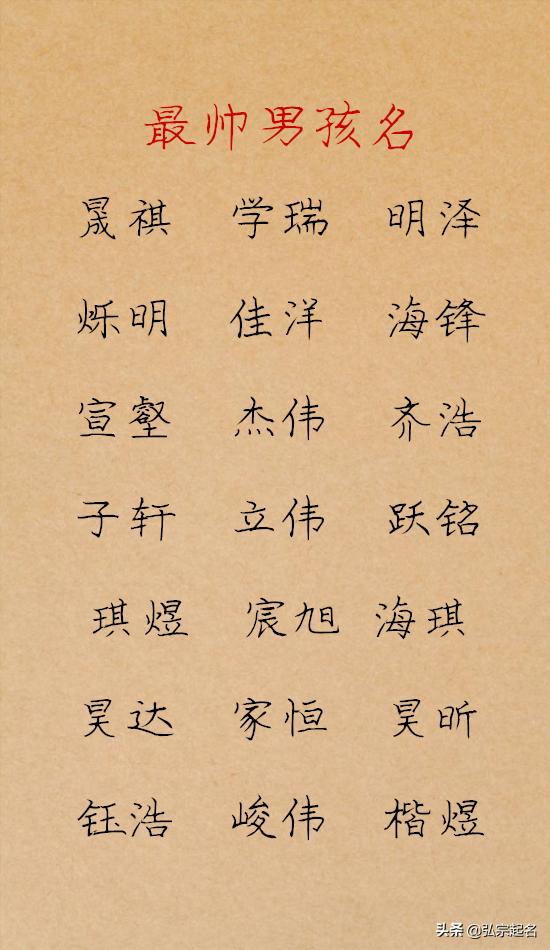 最帅男孩名
晟祺 学瑞 明泽
烁明 佳洋 海锋
宣壑 杰伟 齐浩
子轩 立伟 跃铭
琪煜 宸旭 海琪
昊达 家恒 昊昕
钰浩 峻伟 楷煜
头条 @弘宗起名